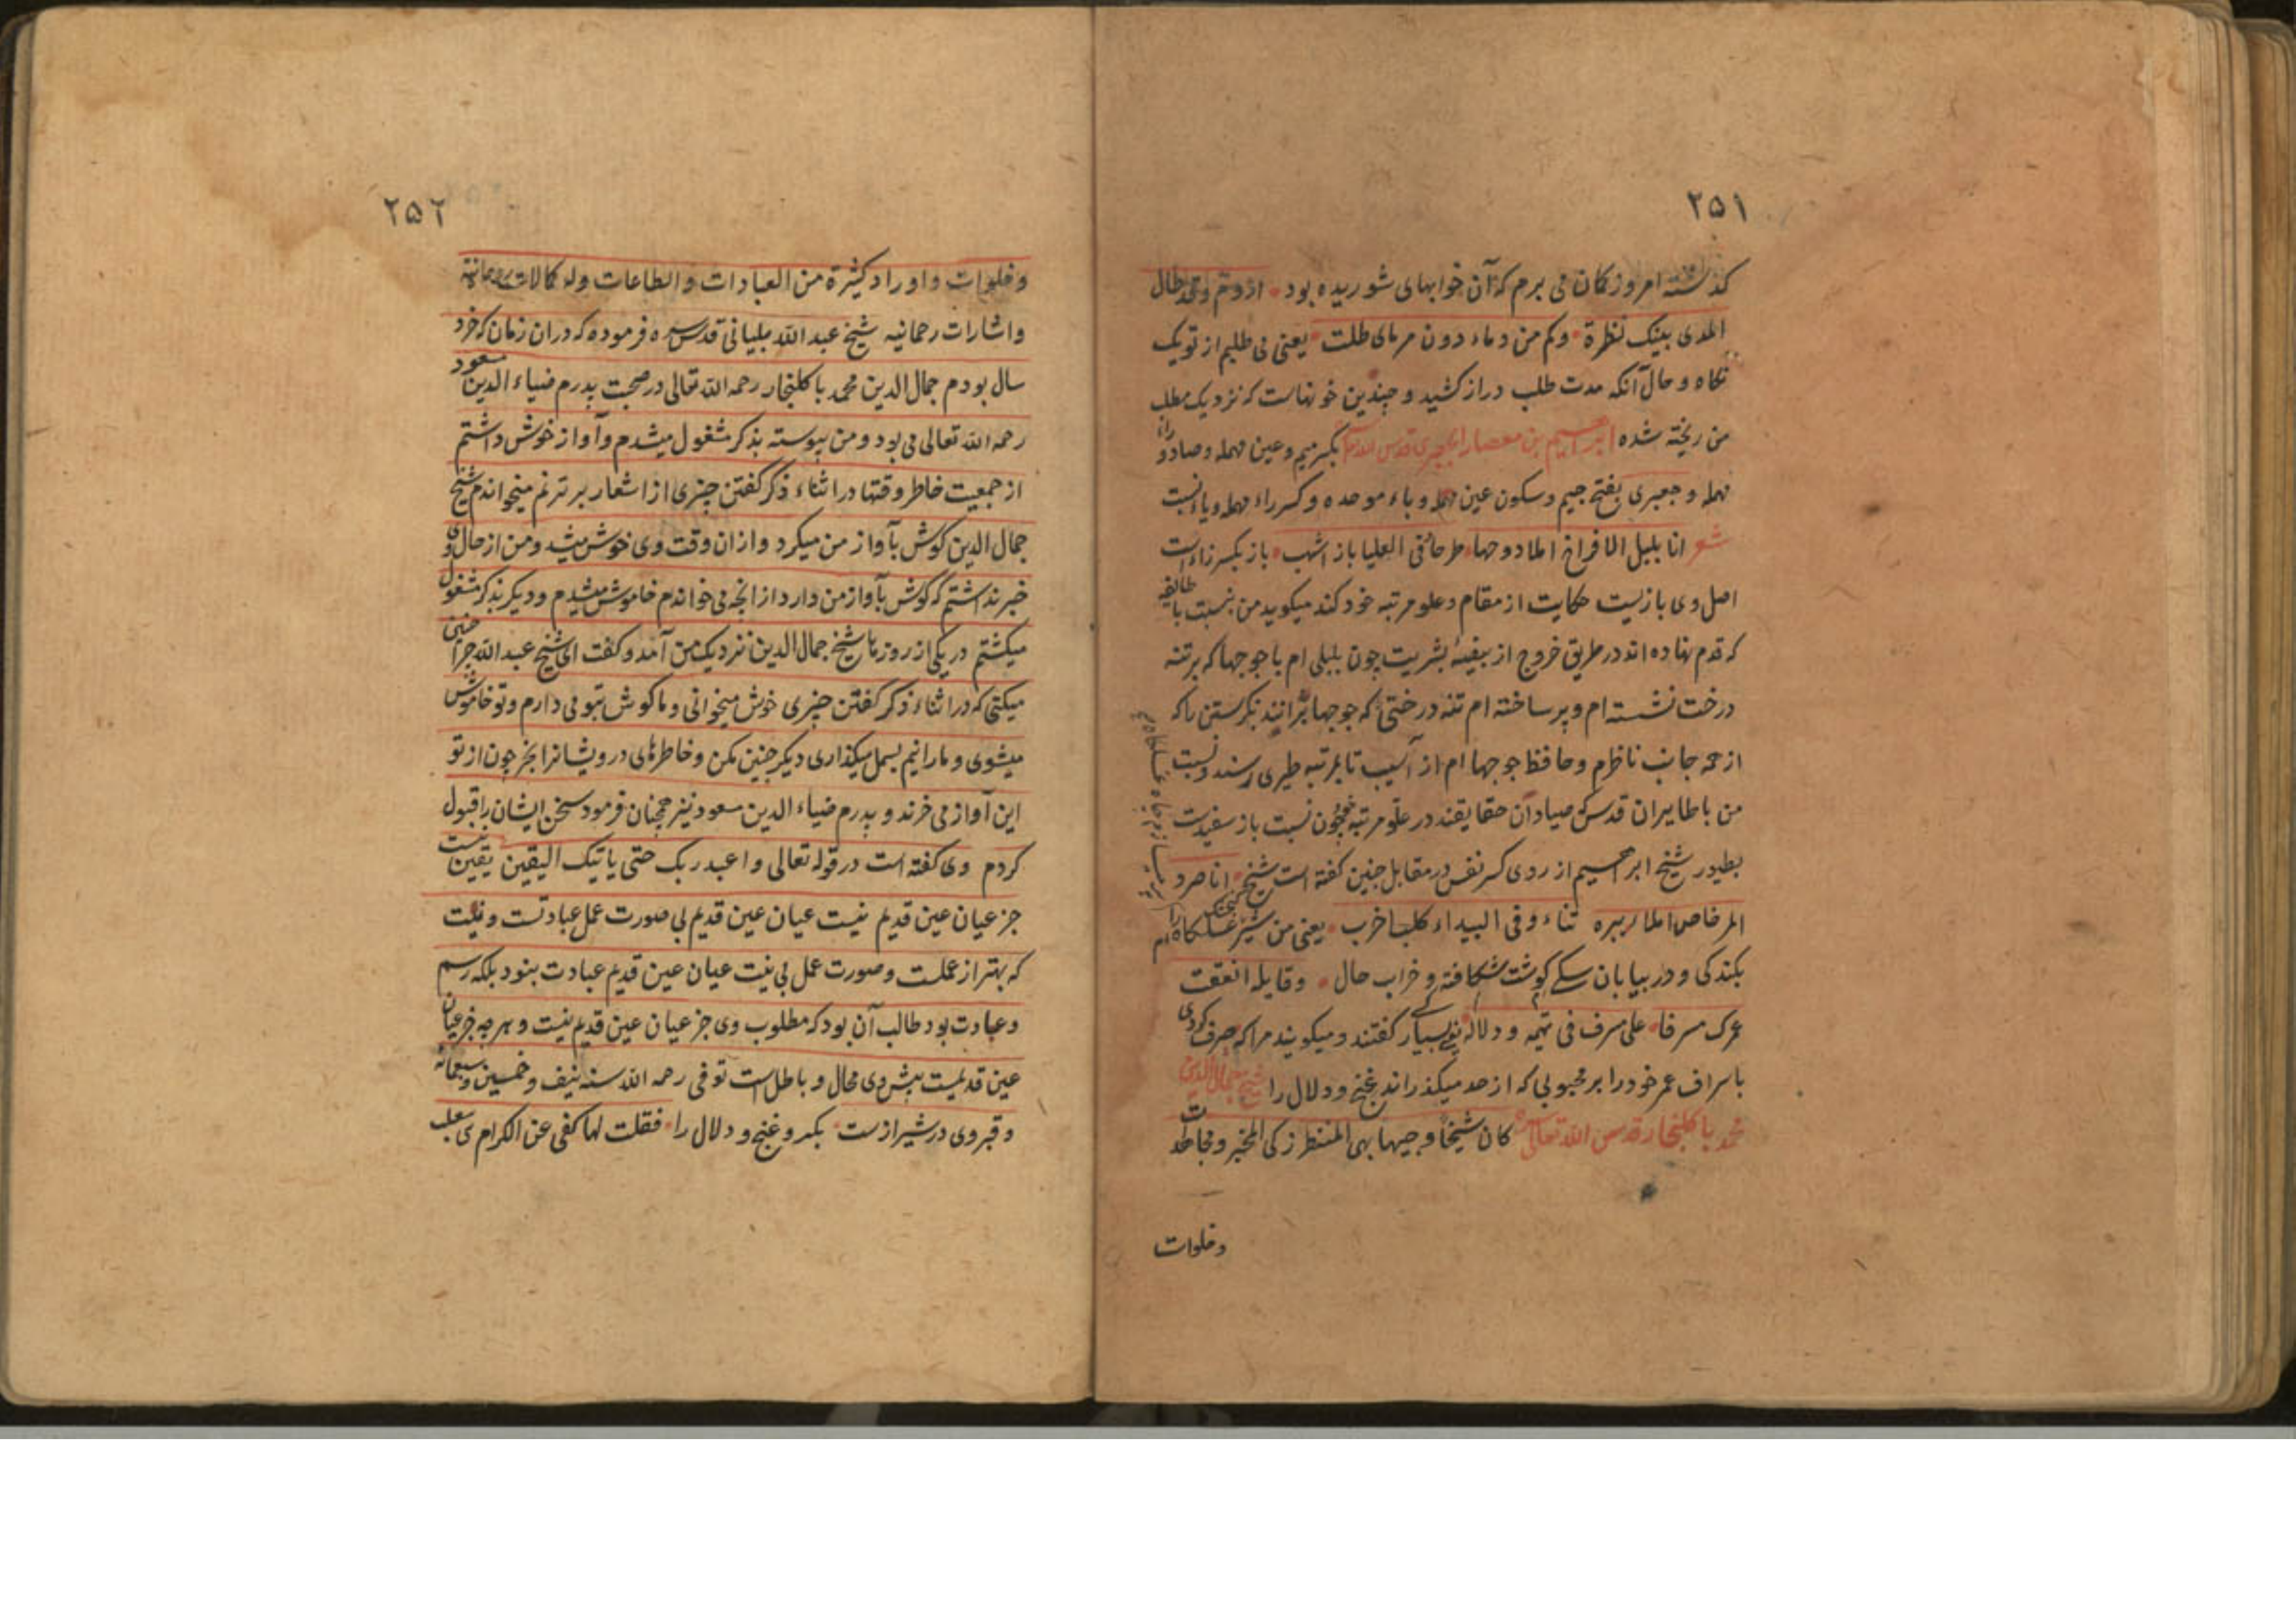 ۲۵۱
گذشته امروز کان می برم که آن خوابهای شوریده بود اروم وقد طال
المدی بینک نظرة وکم من دماء دون مرمای طلت یعنی می طلبم از تو یک
نکاه و حال آنکه مدت طلب دراز کشید و چندین خونهاست که نزدیک مطلب
من ریخته شده ابراهیم بن معضاد الجعبری قدس الله بکسر میم و عین مهمله و صاد و راء
مهمله و جعبری بفتح جیم و سکون عین مهمله و باء موحده و کسر راء مهمله و یاء نسبت
شعر انا بلبل الافراخ املا دوحها طربا وفی العلیا باز اشهب باز بکسر زاء است
اصل وی بازیست حکایت از مقام و علو مرتبه خود کند میکوید من بنسبت با طائفه
که قدم نهاده اند در طریق خروج از بیضهٔ بشریت چون بلبلی ام با جوجها که بر تنه
درخت نشسته ام و پر ساخته ام تنه درختی که جوجها برانند نکریستن را که
از همه جانب ناظرم و حافظ جوجها ام از آسیب تا بمرتبه طیری رسند و نسبت
من با طایران قدس که صیادان حقایقند در علو مرتبه همچون نسبت باز سفیدست
بطیور شیخ ابراهیم از روی کسر نفس در مقابل چنین کفته است شیخ انا صرد
المرخاص املا ربیره ثناء وفی البیداء کلب خرب یعنی من شیر غسلکاه را ام
بکندکی و در بیابان سکے کوشت شکافته و خراب حال وقایله انفقت
عمرک مسرفا علی مسرف فی تیهه ودلاله یعنی بسیار کفتند و میکویند مرا که صرف کردی
باسراف عمر خود را بر محبوبی که از حد میکذراند غنج و دلال را شیخ جمال الدین
محمد باکلنجار قدس الله تعالی سره کان شیخا وجیها بهی المنظر زکی المخبر و مجاهدات
وخلوات
۲۵۲
وخلوات واوراد کثیرة من العبادات والطاعات وله کمالات روحانیة
واشارات رحمانیه شیخ عبد الله بلیانی قدس سره فرموده که دران زمان که خرد
سال بودم جمال الدین محمد باکلنجار رحمه الله تعالی در صحبت پدرم ضیاء الدین مسعود
رحمه الله تعالی می بود و من پیوسته بذکر مشغول میشدم و آواز خوش داشتم
از جمعیت خاطر وقتها در اثناء ذکر کفتن چیزی از اشعار بر ترنم میخواندم شیخ
جمال الدین کوش بآواز من میکرد و ازان وقت وی خوش میشد و من از حال وی
خبر نداشتم که کوش بآواز من دارد از انچه می خواندم خاموش میشدم و دیکر بذکر مشغول
میکشتم در یکی از روزها شیخ جمال الدین نزدیک من آمد و کفت ای شیخ عبد الله چرا چنین
میکنی که در اثناء ذکر کفتن چیزی خوش میخوانی و ما کوش بتو می دارم و تو خاموش
میشوی و ما را نیم بسمل میکذاری دیکر چنین مکن و خاطرهای درویشانرا بخر چون از تو
این آواز می خرند و پدرم ضیاء الدین مسعود نیز همچنان فرمود سخن ایشان را قبول
کردم وی کفته است در قوله تعالی واعبد ربک حتی یاتیک الیقین یقین نیست
جز عیان عین قدیم نیست عیان عین قدیم بی صورت عمل عبادتست و نیت
که بهتر از عملست و صورت عمل بی نیت عیان عین قدیم عبادت بنود بلکه رسم
و عبادت بود طالب آن بود که مطلوب وی جز عیان عین قدیم نیست و هر چه جز عیان
عین قدیمست پیش وی محال و باطل است توفی رحمه الله سنه نیف وخمسین وسبعمائة
و قبر وی در شیرازست بکبر و غنج و دلال را فقلت لها کفی عن الکرام